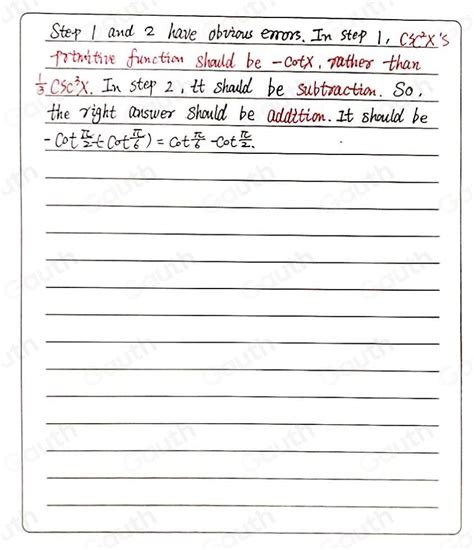 Step 1 and 2 have obvious errors. In step 1, csc²x's
primitive function should be -cotx, rather than
⅓csc³x. In step 2, it should be subtraction. So,
the right answer should be addition. It should be
-cot π/2 -(-cot π/6) = cot π/6 - cot π/2.
Gauth